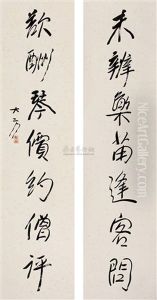 未辨藥苗逢客問
欲酬琴價約僧評
大千